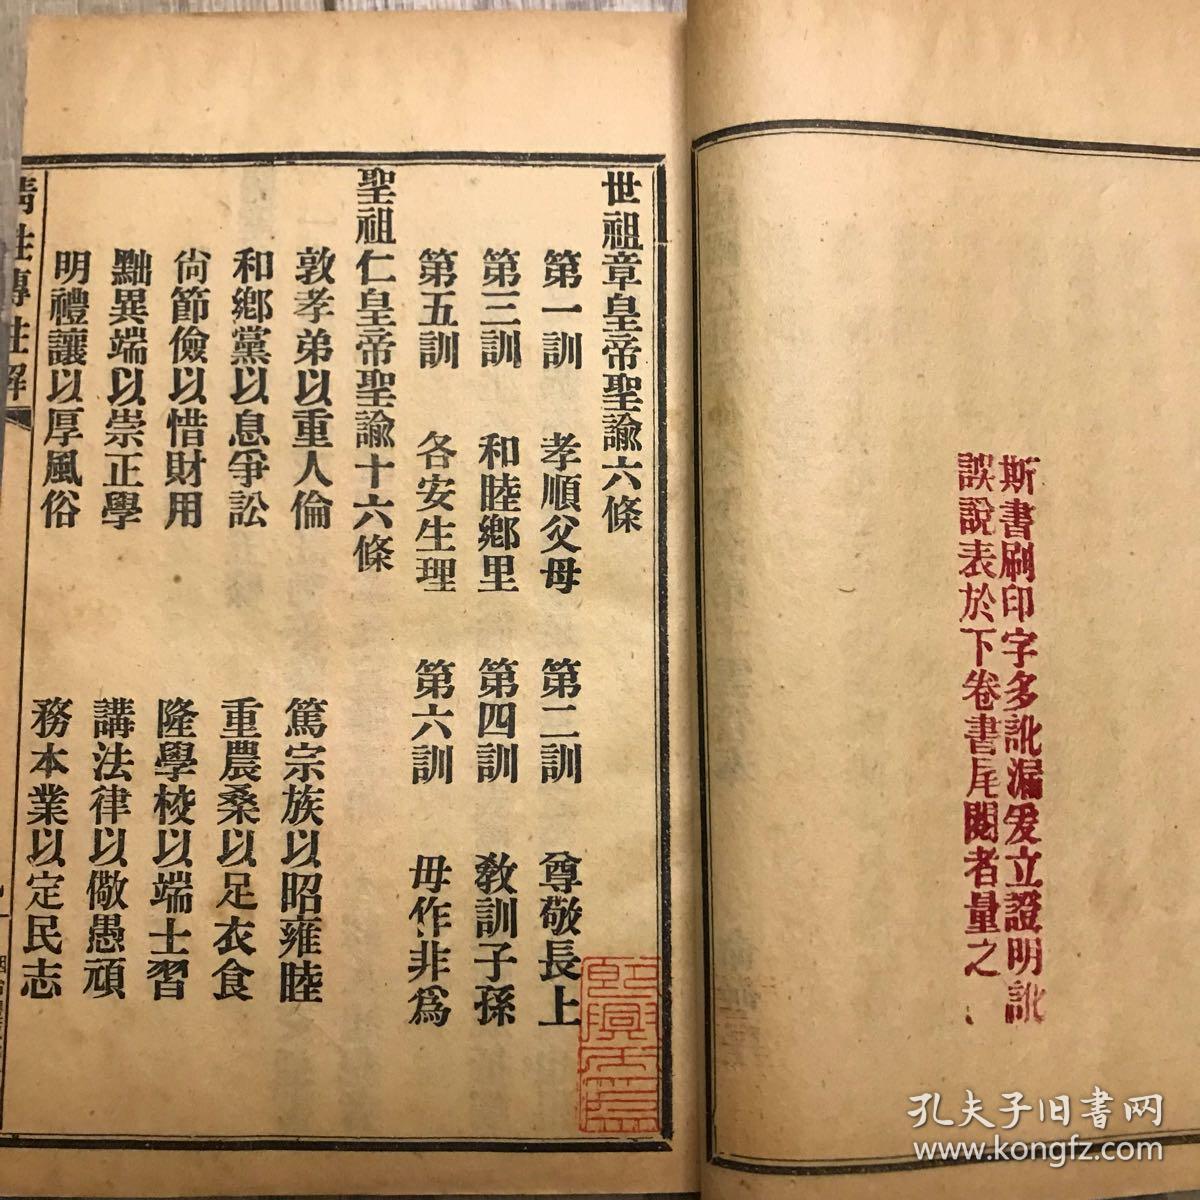 斯書刷印字多訛漏爰立證明訛
誤說表於下卷書尾閱者量之
世祖章皇帝聖諭六條
第一訓 孝順父母 第二訓 尊敬長上
第三訓 和睦鄉里 第四訓 教訓子孫
第五訓 各安生理 第六訓 毋作非為
聖祖仁皇帝聖諭十六條
敦孝弟以重人倫 篤宗族以昭雍睦
和鄉黨以息爭訟 重農桑以足衣食
尙節儉以惜財用 隆學校以端士習
黜異端以崇正學 講法律以儆愚頑
明禮讓以厚風俗 務本業以定民志
孔夫子旧书网
www.kongfz.com